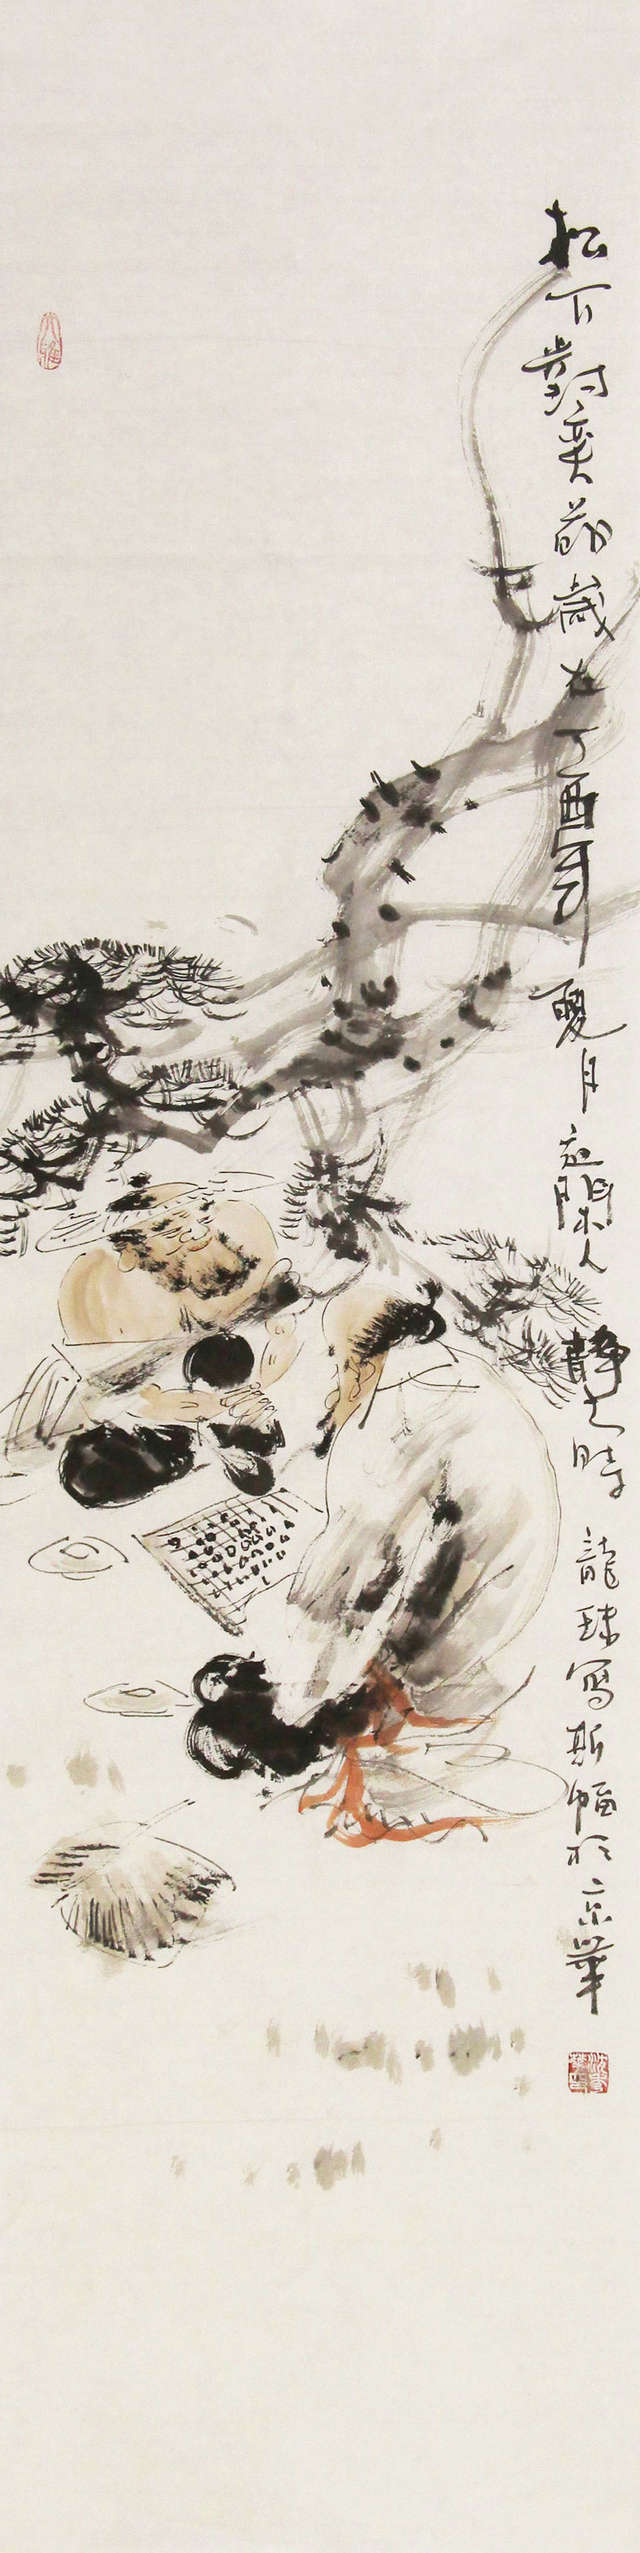 松下對奕歲在丁酉年夏月夜闌人靜之時 龍寫斯幅於京華
大雅